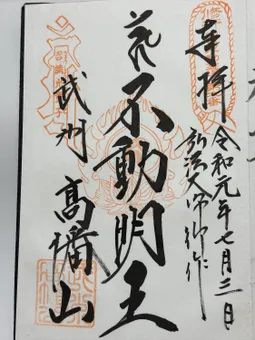 奉拝 令和元年七月三日
弘法大師御作
不動明王
武州 高幡山